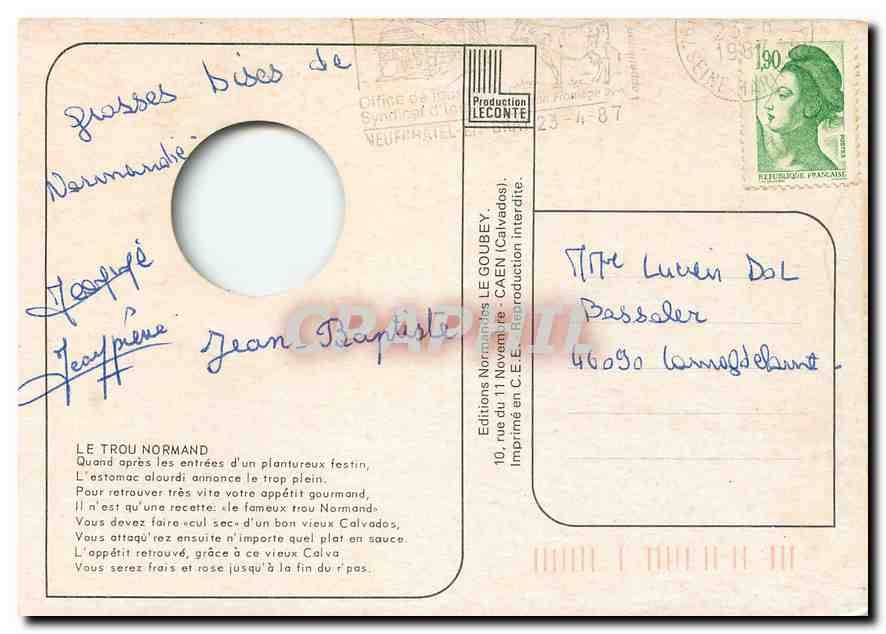 grosses bises de
Normandie
Jean-Baptiste
LE TROU NORMAND
Quand après les entrées d'un plantureux festin,
L'estomac alourdi annonce le trop plein.
Pour retrouver très vite votre appétit gourmand,
Il n'est qu'une recette: «le fameux trou Normand»
Vous devez faire «cul sec» d'un bon vieux Calvados,
Vous attaqu'rez ensuite n'importe quel plat en sauce.
L'appétit retrouvé, grâce à ce vieux Calva
Vous serez frais et rose jusqu'à la fin du r'pas.
Production
LECONTE
Editions Normandes LE GOUBEY.
10, rue du 11 Novembre - CAEN (Calvados).
Imprimé en C.E.E. Reproduction interdite.
Office de
Syndicat d'
23-4-87
SEINE
1,90
POSTES
REPUBLIQUE FRANÇAISE
Mme Lucien DOL
46090
CPAPHIL